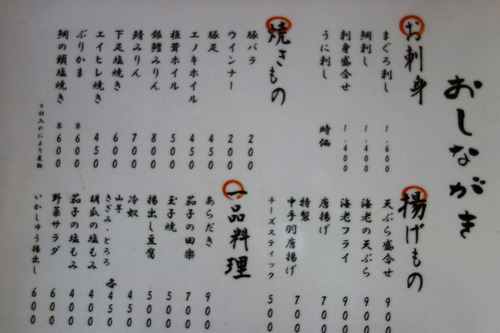 おしながき
お刺身
まぐろ刺し 1.600
鯛刺し
刺身盛合せ 1.400
うに刺し 時価
焼きもの
豚バラ 200
ウインナー 200
豚足 450
エノキホイル 450
椎茸ホイル 500
銀鱈みりん 800
鯖みりん 700
下足塩焼き 600
エイヒレ焼き 450
ぶりかま 600
鯛の頭塩焼き 600
揚げもの
天ぷら盛合せ 900
海老の天ぷら 900
海老フライ 900
唐揚げ 700
特製
中手羽唐揚げ 700
チーズスティック 500
一品料理
あらだき 900
茄子の田楽 700
玉子焼 500
揚出し豆腐 500
冷奴 450
山芋
きざみ・とろろ 各400
胡瓜の塩もみ 400
茄子の塩もみ 400
野菜サラダ 600
いかしゅう揚出し 600